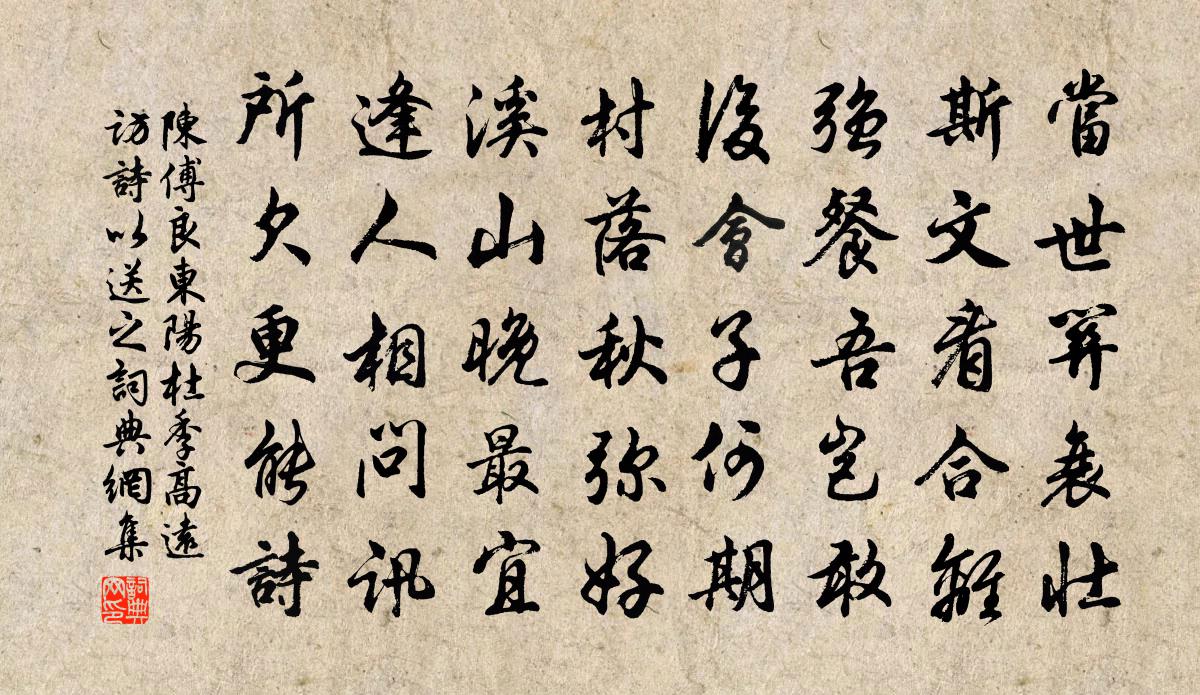 當世算衰壯
斯文看合離
強餐吾豈敢
後會子何期
村落秋弥好
溪山晚最宜
逢人相問訊
所欠更能詩
陳傅良東陽杜季高遠
訪詩以送之詞典網集
詞典
网印